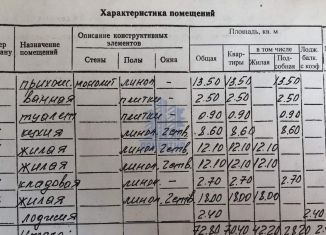 Характеристика помещений
Назначение помещений Описание конструктивных элементов Площадь, кв. м
Стены Полы Окна Общая Квартиры в том числе Лодж. балк.
Жилая Подсобная
прихож. монолит линол - 13.50 13.50 13.50
ванная плитки - 2.50 2.50 2.50
туалет плитки - 0.90 0.90 0.90
кухня линол. 2 ств. 8.60 8.60 8.60
жилая линол. 2 ств. 12.10 12.10 12.10
жилая линол. 2 ств. 12.10 12.10 12.10
кладовая линол - 2.70 2.70 2.70
жилая линол. 2 ств. 18.00 18.00 18.00
лоджия 2.40 2.40
Итого: 72.80 70.40 42.20 28.20